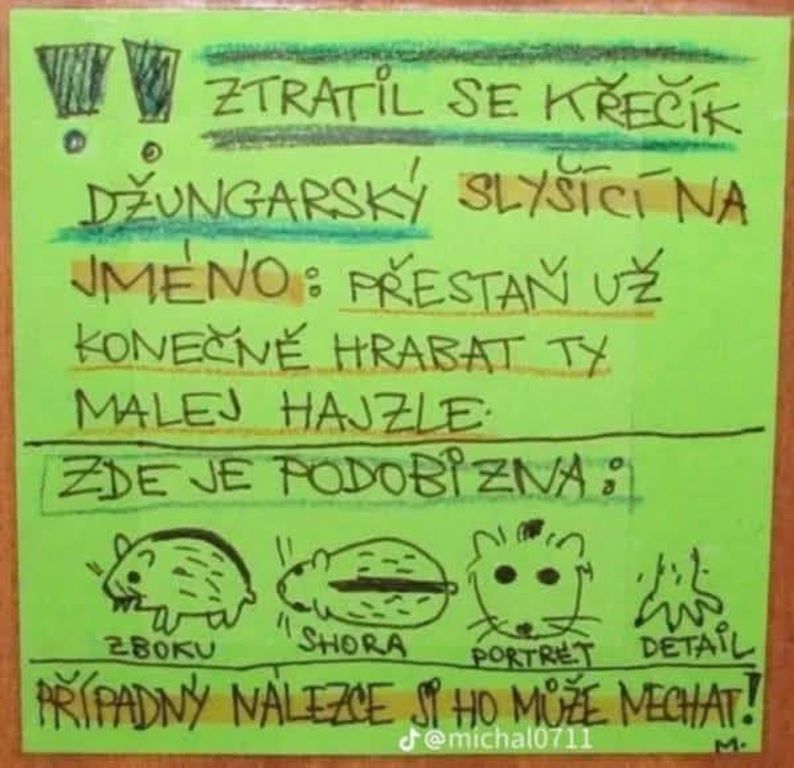 !! ZTRATIL SE KŘEČÍK
DŽUNGARSKÝ SLYŠÍCÍ NA
JMÉNO: PŘESTAŇ UŽ
KONEČNĚ HRABAT TY
MALEJ HAJZLE.
ZDE JE PODOBIZNA:
ZBOKU SHORA PORTRÉT DETAIL
PŘÍPADNÝ NÁLEZCE SI HO MŮŽE NECHAT!
M.
@michal0711